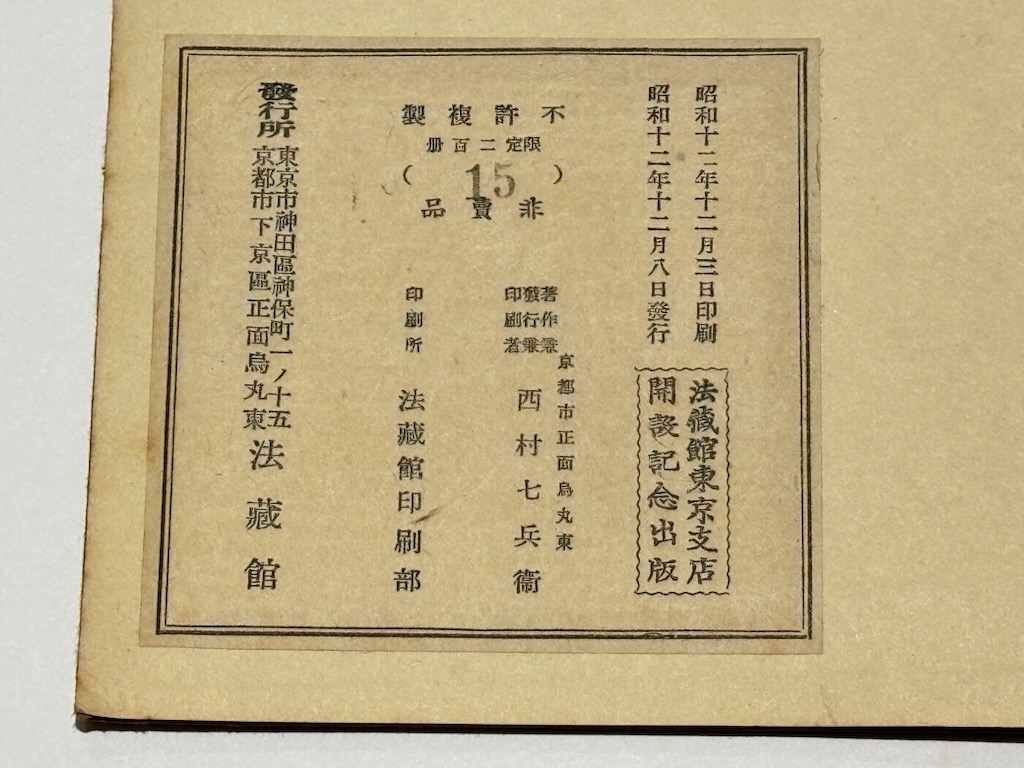 昭和十二年十二月三日印刷
昭和十二年十二月八日發行
法藏館東京支店
開設記念出版
不許複製
限定二百册
（15）
非賣品
京都市正面烏丸東
著作兼
發行兼
印刷者
西村七兵衞
印刷所 法藏館印刷部
發行所
東京市神田區神保町一ノ十五
京都市下京區正面烏丸東
法藏館